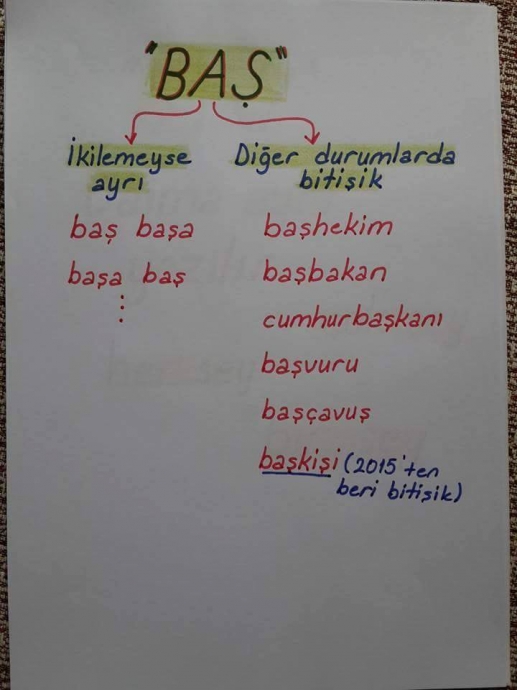 "BAŞ"
İkilemeyse
ayrı
baş başa
başa baş
⋮
Diğer durumlarda
bitişik
başhekim
başbakan
cumhurbaşkanı
başvuru
başçavuş
başkişi (2015'ten
beri bitişik)